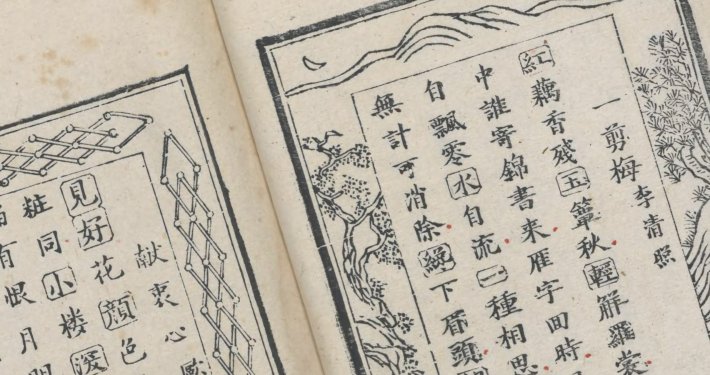 一剪梅 李清照
紅藕香残玉簟秋輕解羅裳
中誰寄錦書來雁字回時
自飄零水自流一種相思
無計可消除纔下眉頭
献衷心
見好花顔色
粧同小楼深
有恨月明